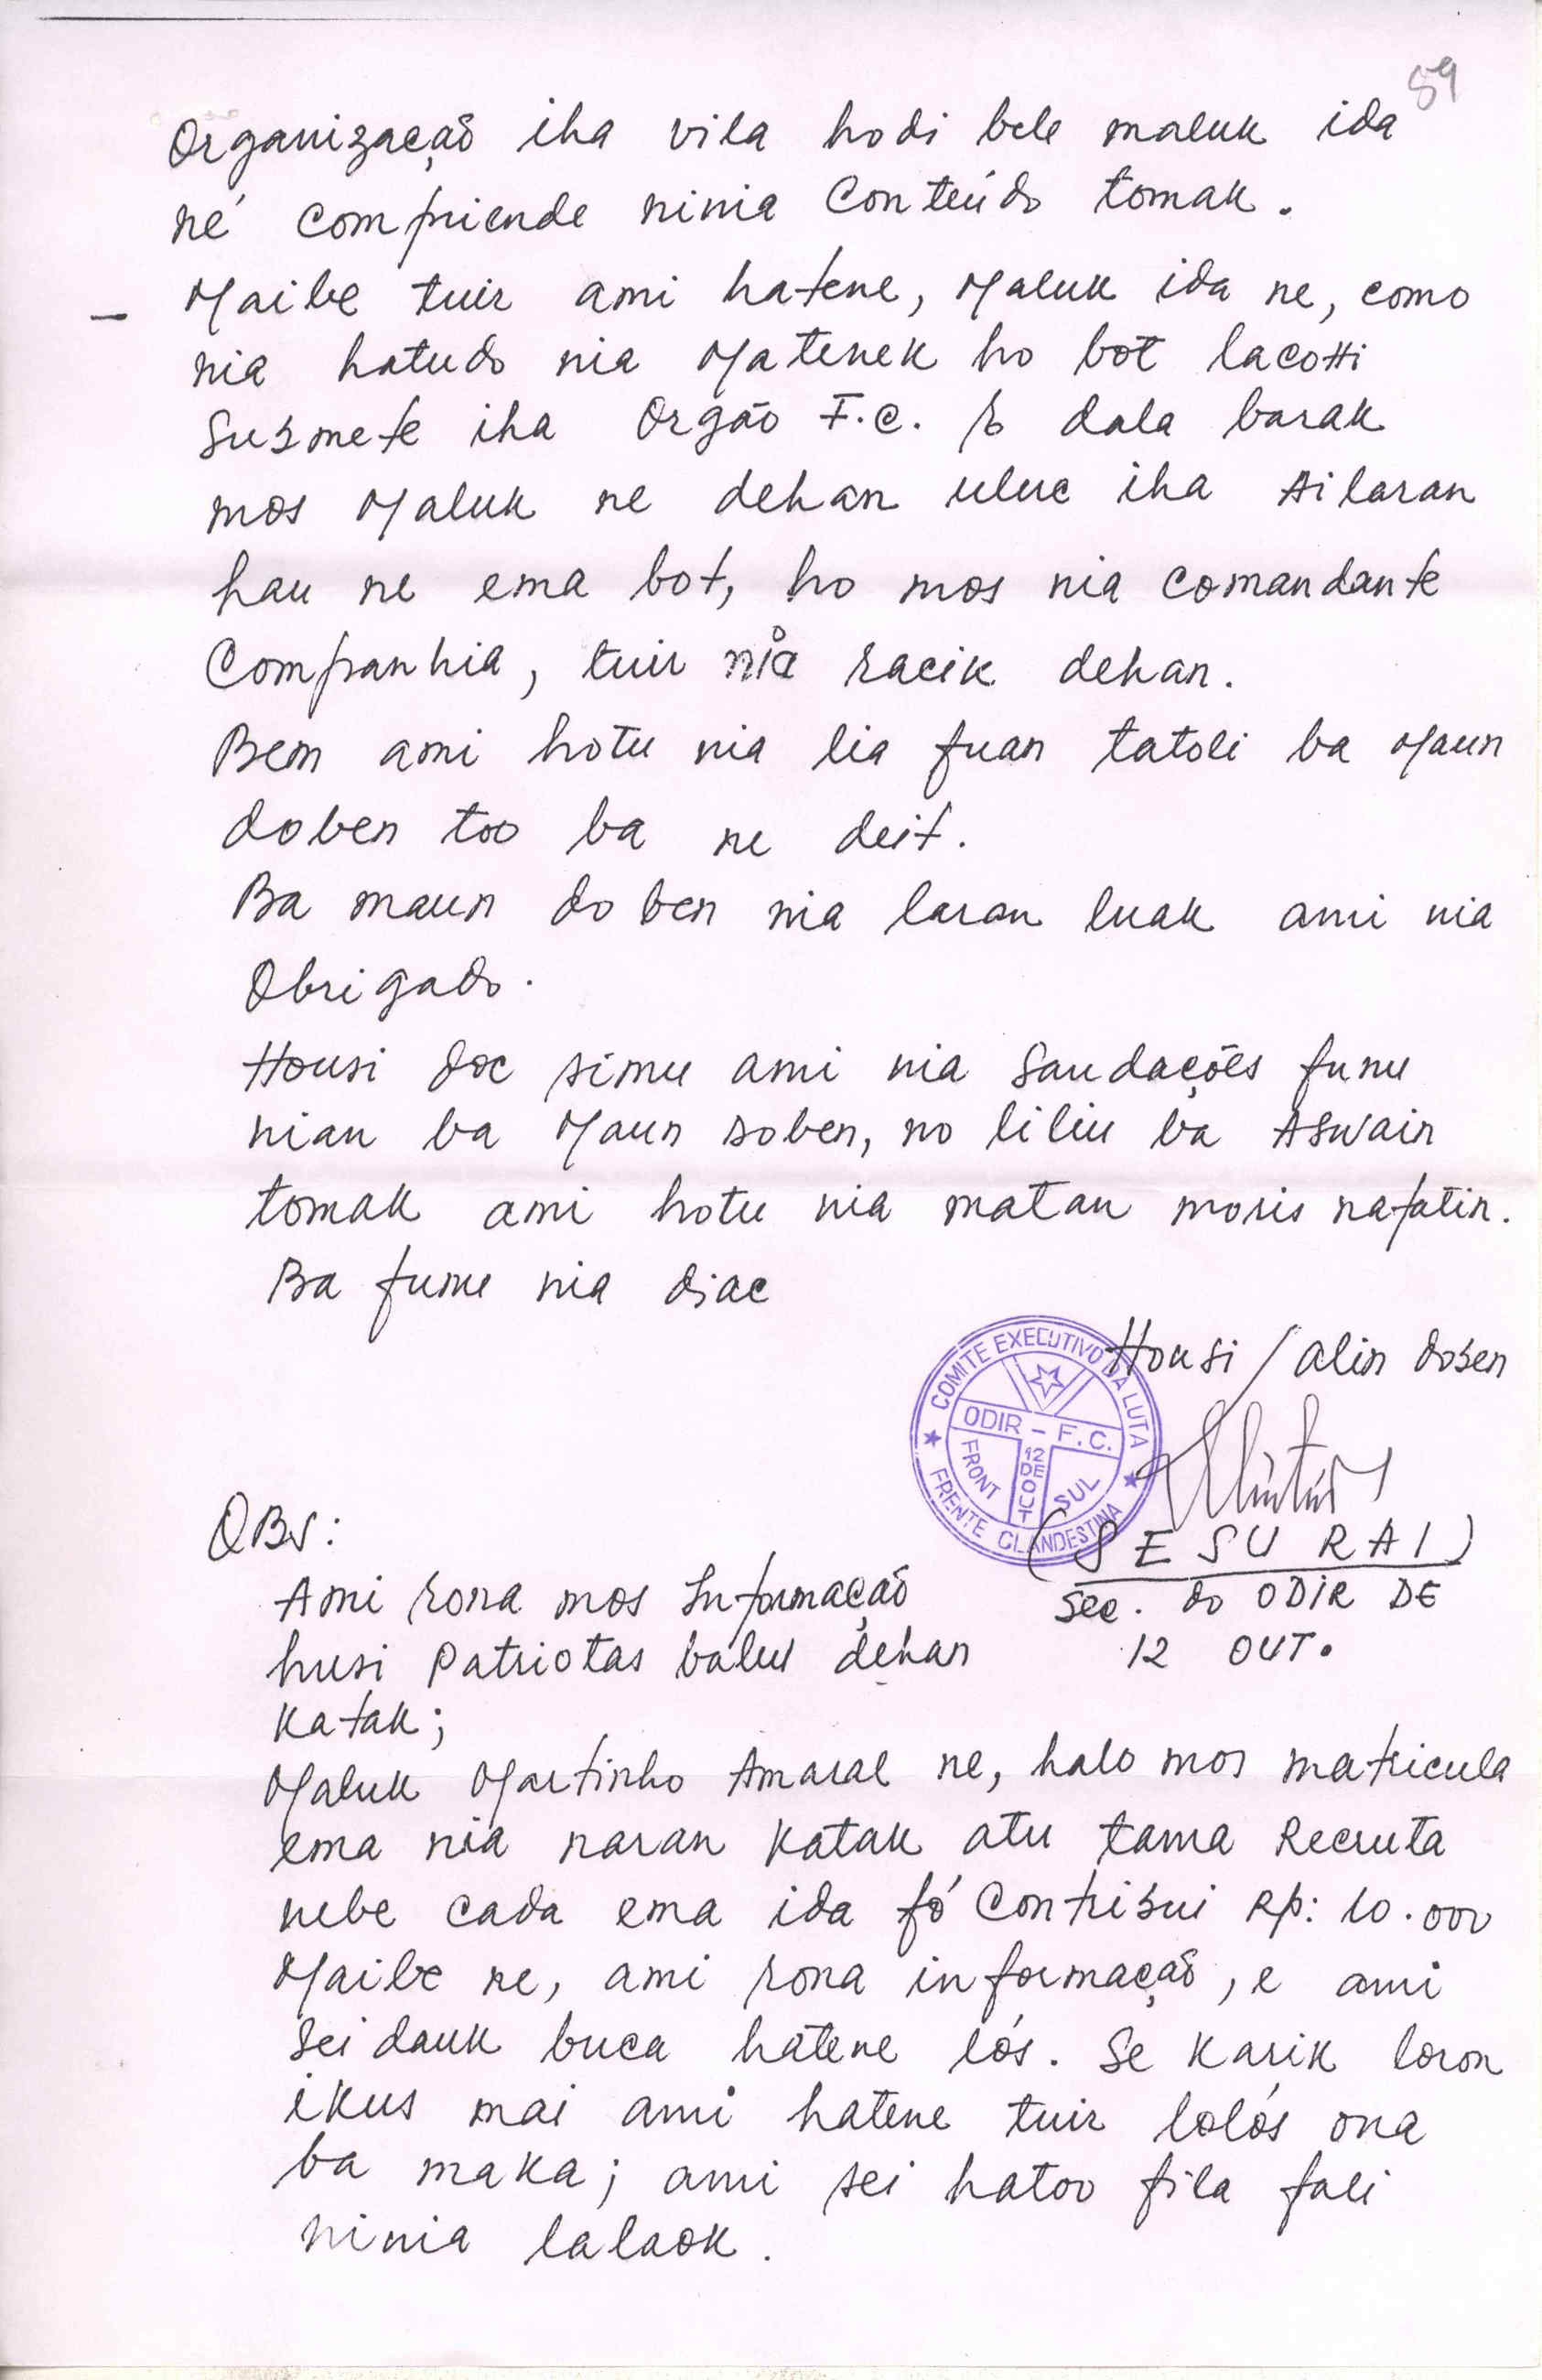 59
Organização iha vila hodi bele maluk ida
né compriende ninia Conteúdo tomak.
— Maibe tuir ami hatene, Maluk ida ne, como
nia hatudo nia Matenek ho bot lacohi
Submete iha Orgão F.C. E dala barak
mos Maluk ne dehan uluc iha Ailaran
hau ne ema bot, ho mos nia comandante
Companhia, tuir nia racik dehan.
Bem ami hotu nia lia fuan tatoli ba Maun
doben too ba ne deit.
Ba maun doben nia laran luak ami nia
Obrigado.
Housi doc simu ami nia Saudações funu
nian ba Maun doben, no liliu ba Aswain
tomak ami hotu nia matan moris nafatin.
Ba funu nia diac
Housi / alin doben
COMITE EXECUTIVO DA LUTA
ODIR - F.C.
FRONT SUL
12 DE OUT
FRENTE CLANDESTINA
(SESU RAI)
Sec. do ODIR DE
12 OUT.
OBS:
Ami rona mos Informação
husi Patriotas balu dehan
Katak;
Maluk Martinho Amaral ne, halo mos matricula
ema nia naran Katak atu tama Recruta
nebe cada ema ida fó Contribui Rp: 10.000
Maibe ne, ami rona informação, e ami
sei dauk buca hatene lós. Se Karik loron
ikus mai ami hatene tuir lolós ona
ba maka; ami sei hatoo fila fali
ninia lalaok.